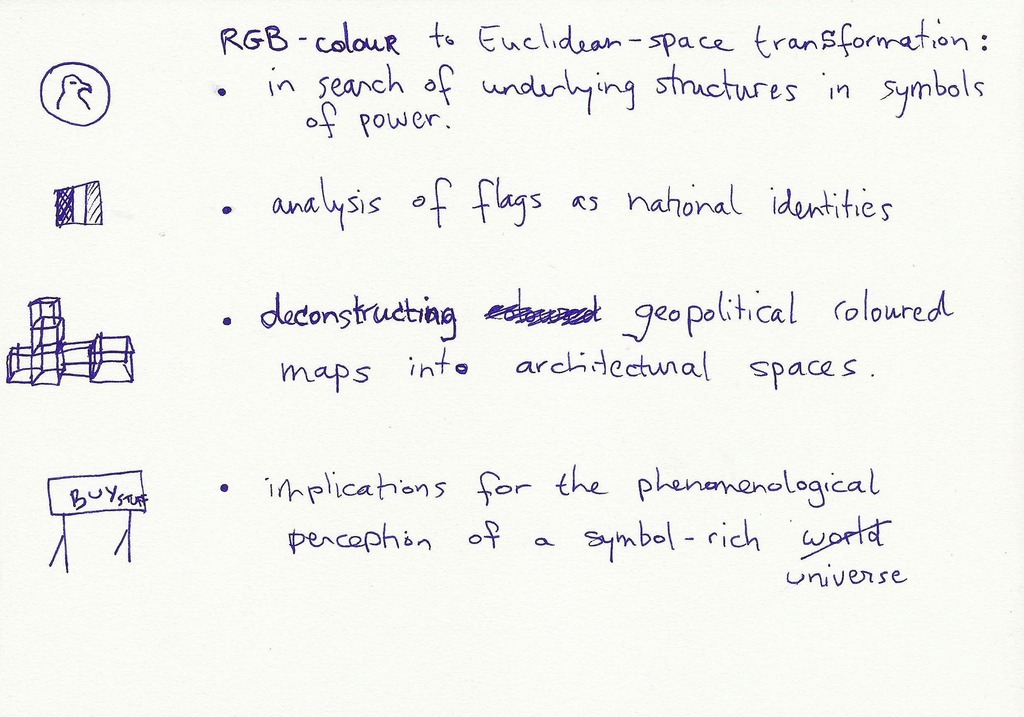 RGB-colour to Euclidean-space transformation:
• in search of underlying structures in symbols
of power.
• analysis of flags as national identities
• deconstructing geopolitical coloured
maps into architectural spaces.
BUY STUFF
• implications for the phenomenological
perception of a symbol-rich world
universe